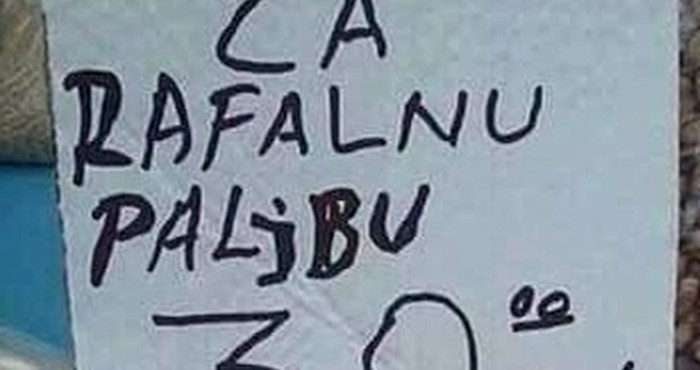 ČA
RAFALNU
PALjBU
30 00